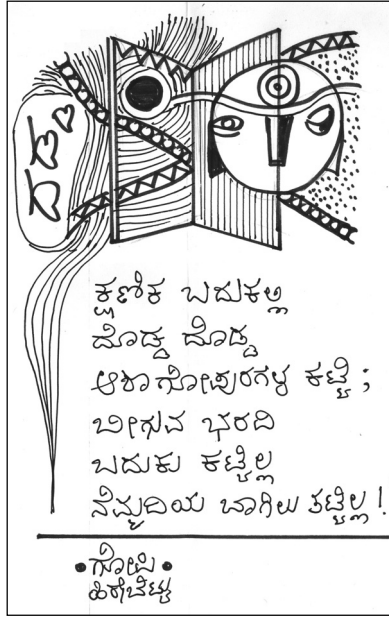 ಕ್ಷಣಿಕ ಬದುಕಲ್ಲಿ
ದೊಡ್ಡ ದೊಡ್ಡ
ಆಶಾಗೋಪುರಗಳ ಕಟ್ಟಿ;
ಬೀಗುವ ಭರದಿ
ಬದುಕು ಕಟ್ಟಿಲ್ಲ
ನೆಮ್ಮದಿಯ ಬಾಗಿಲು ತಟ್ಟಿಲ್ಲ!
•ಗೋಪಿ•
ಹಿರೇಬೆಟ್ಟು